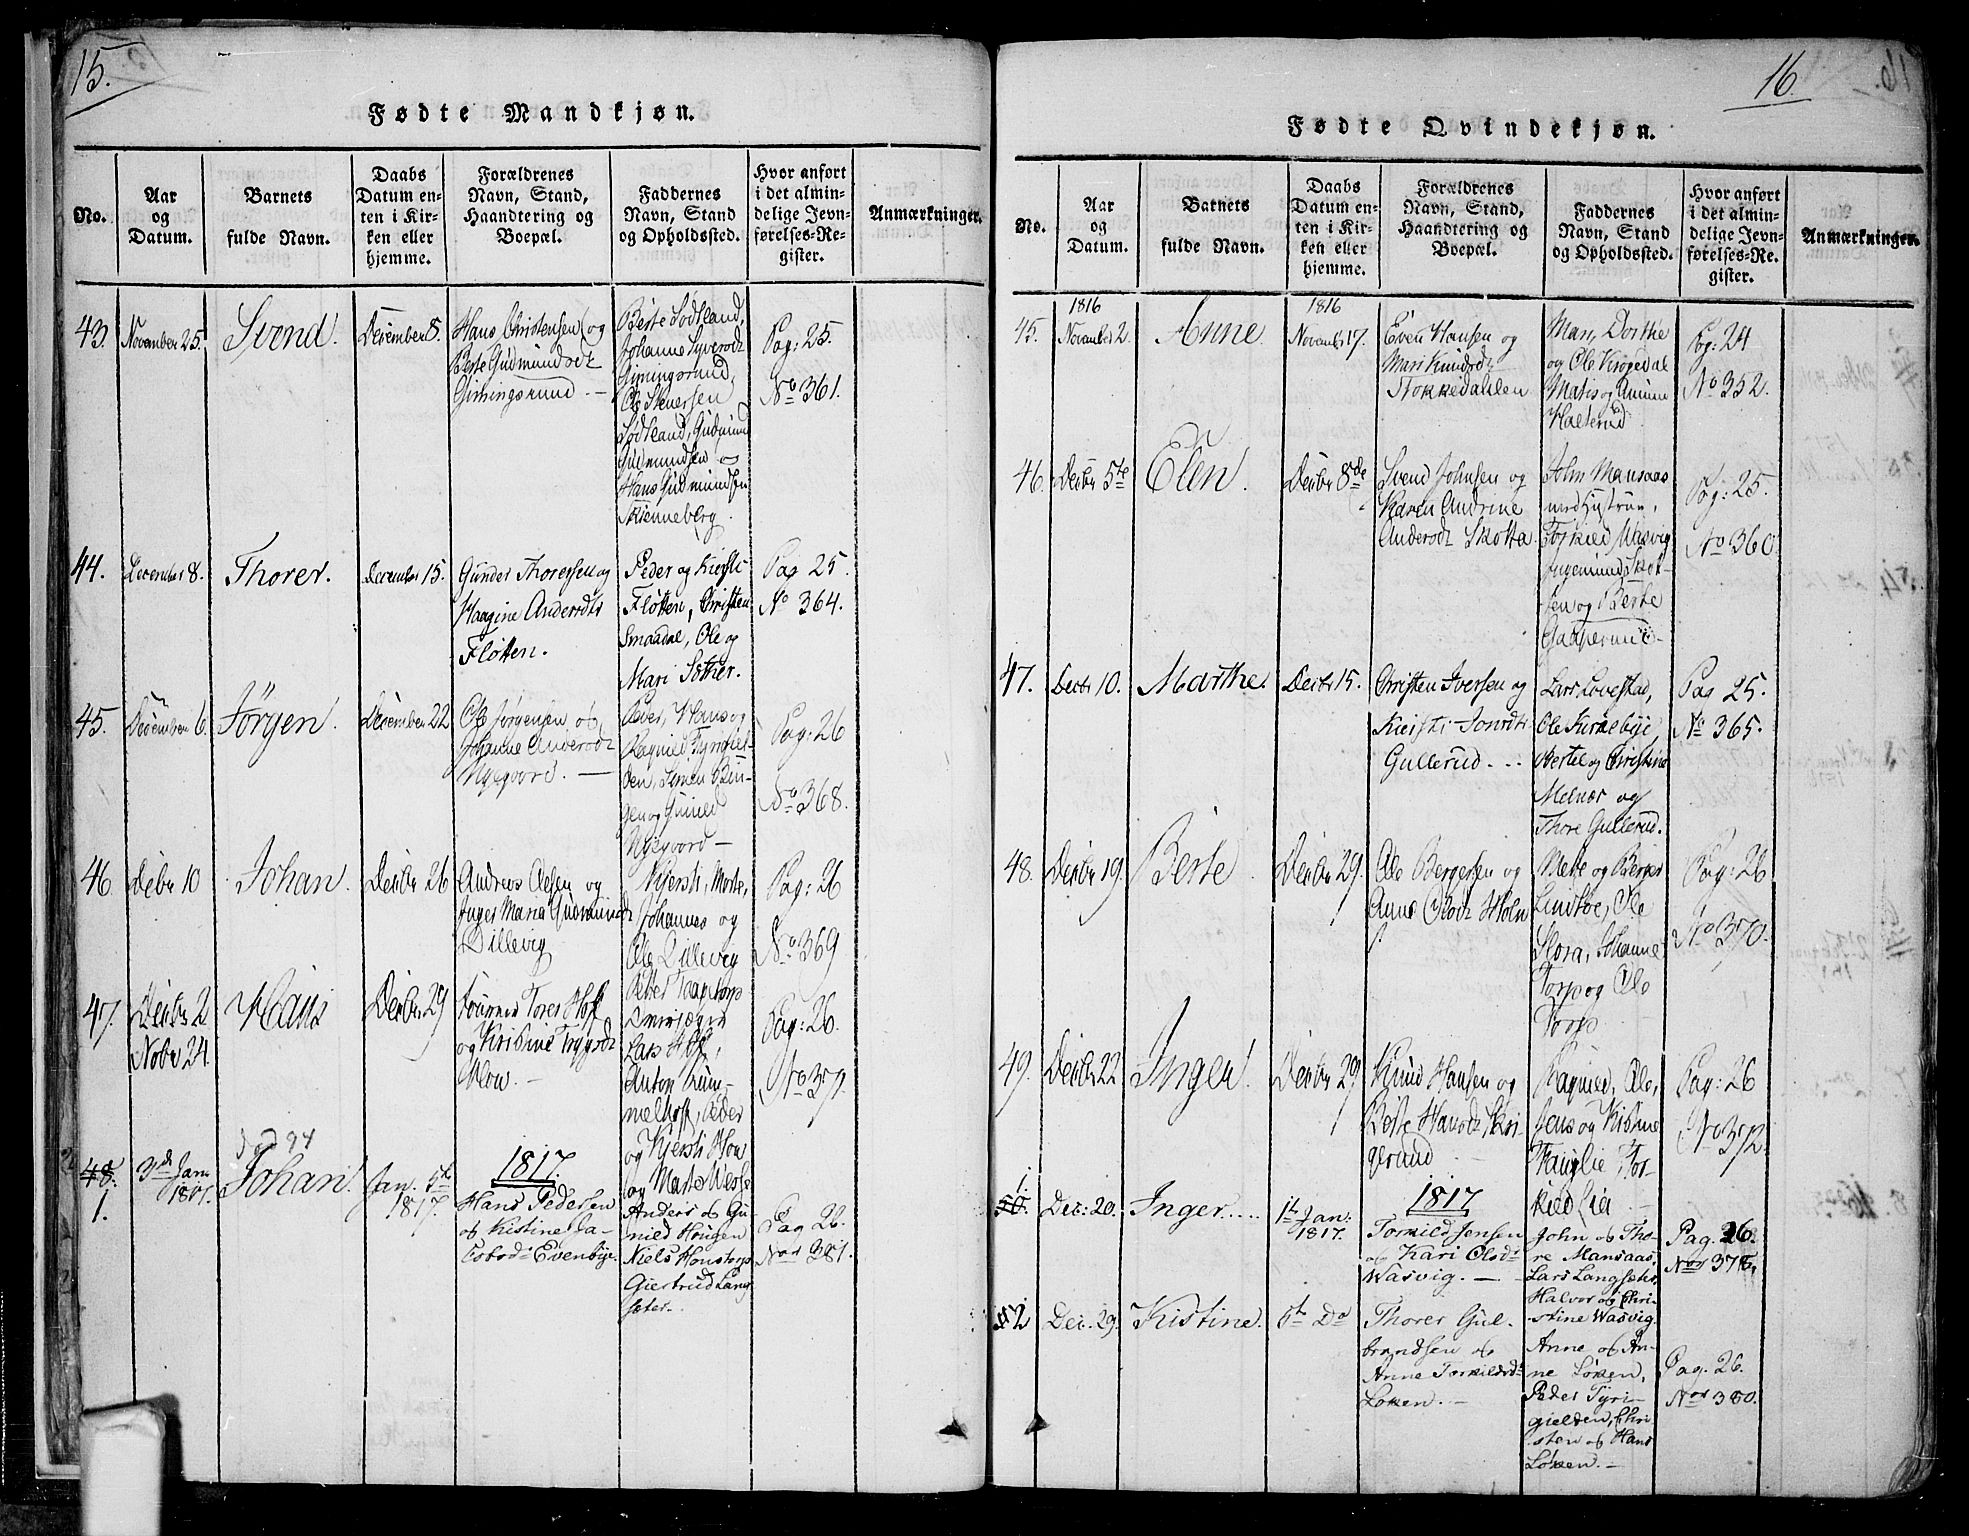 15.
Fødte Mandkjøn.
No.
Aar
og
Datum.
Barnets
fulde Navn.
Daabs
Datum en-
ten i Kir-
ken eller
hjemme.
Forældrenes
Navn, Stand,
Haandtering og
Boepæl.
Faddernes
Navn, Stand
og Opholdssted.
Hvor anført
i det almin-
delige Jevn-
førelses-Re-
gister.
Anmærkninger.
43.
November 25.
Svend.
Desember 8.
Hans Christensen og
Berte Gudmundsdt
Gimingsrund. —
Berte Sødtland,
Johanne Syverodt
Gimingsrund,
Ole Skuersen
Sødtland, Gudmund
Gudmundsen og
Hans Gudmundsen
Skienneberg.
Pag: 25.
No 361.
44.
December 8.
Thorer.
December 15.
Gunder Thoresen og
Haagine Andersdtr
Fløtten.
Peder og Kiersti
Fløtten, Christen
Smaadal, Ole og
Mari Sother.
Pag 25.
No 364.
45.
Desember 6.
Jörgen.
Desember 22
Ole Jørgensen og
Johanne Andersdt
Nygaard. —
Peder, Hans og
Ragnild Tyrigiel-
den, Simen Bin-
gen og Gunild
Nygaard —
Pag: 26
No 368.
46
Debr 10
Johan.
Desbr 26
Andreas Olsen og
Inger Maria Gudmundsdt
Lillevig
Kjersti, Marte,
Johannes og
Ole Lillevig
Pag: 26
No 369
47.
Desbr 2
Nobr 24.
Hans
Desbr 29
og Kristine Trygsdt
Mow. —
Lars Hoff,
Anton Trum-
melhoff, Peder
og Kjersti Hou
og
Pag: 26.
No 371.
48.
1.
3de Jan.
1817.
Johan.
Jan. 5te
1817.
1817.
Hans Pedersen
og Kistine Ja-
cobsd: Evenbye.
Anders og Gu-
nild Hougen
Niels Honstorp
Giertrud Lang-
seter.
Pag 26.
Nor 381.
16.
Fødte Qvindekjøn.
No.
Aar
og
Datum.
Barnets
fulde Navn.
Daabs
Datum en-
ten i Kir-
ken eller
hjemme.
Forældrenes
Navn, Stand,
Haandtering og
Boepæl.
Faddernes
Navn, Stand
og Opholdssted.
Hvor anført
i det almin-
delige Jevn-
førelses-Re-
gister.
Anmærkninger.
45.
1816
November 2.
Anne.
1816
Novemb 17.
Even Hansen og
Mari Knudsdt
Stokkedahlen
Mari, Dorthe
og Ole Krogedal
Matis og
Kalterud.
Pag: 24
No 352.
46.
Desbr 5te
Elen.
Desbr 8de
Svend Johnsen og
Karen Andrine
Andersdt Skotta.
John Mansaas
med Hustrue,
Torkild Wasvig
Ingemund Skot-
ten og Berte
Gaaserud —
Pag: 25.
No 360
47.
Desbr 10.
Marthe.
Desbr 15.
Christen Iversen og
Kiersti
Gullerud. ..
Lars Lovestad,
Ole Kirkebye,
Bertel og Christine
Melnær og
Thore Gullerud.
Pag 25.
No 365.
48.
Desbr 19.
Berte
Desbr 29.
Ole Bergersen og
Anne Olsdt Holm
Mette og Berger
Lindtoe, Ole
Flora, Johanne
Torp og Ole
Torp
Pag: 26
No 370.
49.
Desbr 22.
Inger.
Desbr 29
Knud Hansen og
Berte Hansdt Skri-
gerud
Ragnild, Ole,
Jens og Kistine
Fauglie, Tor-
kild Lia
Pag: 26
No 372.
50.
1.
Dec: 20.
Inger.....
1te Jan:
1817.
1817
Torkild Jensen
og Kari Olsd:
Wasvig. —
John og Tho-
re Mansaas,
Lars Langseter,
Halvor og Chri-
stine Wasvig.
Pag. 26.
52
Dec. 29.
Kistine.
5te Do
Thorer Gul-
brandsen og
Anne Torkildsd:
Løken. —
Anne og An-
ne Løken,
Peder Tyri-
gielden, Chri-
sten og Hans
Løken. —
Pag. 26.
Nor 380.